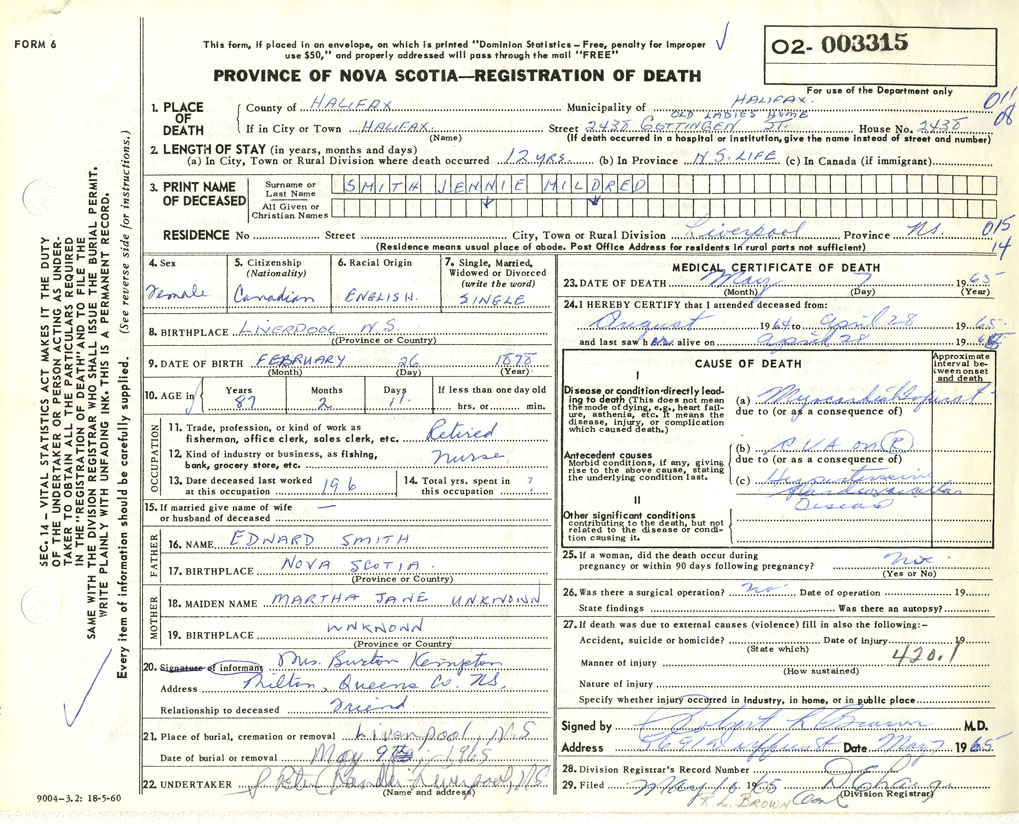 FORM 6
This form, if placed in an envelope, on which is printed "Dominion Statistics – Free, penalty for improper
use $50," and properly addressed will pass through the mail "FREE"
PROVINCE OF NOVA SCOTIA—REGISTRATION OF DEATH
02- 003315
For use of the Department only
SEC. 14 – VITAL STATISTICS ACT MAKES IT THE DUTY
OF THE UNDERTAKER OR PERSON ACTING AS UNDER-
TAKER TO OBTAIN ALL THE PARTICULARS REQUIRED
IN THE "REGISTRATION OF DEATH" AND TO FILE THE
SAME WITH THE DIVISION REGISTRAR WHO SHALL ISSUE THE BURIAL PERMIT.
WRITE PLAINLY WITH UNFADING INK. THIS IS A PERMANENT RECORD.
Every item of information should be carefully supplied. (See reverse side for instructions.)
1. PLACE OF DEATH
County of HALIFAX Municipality of HALIFAX. 011
OLD LADIES HOME 08
If in City or Town HALIFAX. Street 2438 GOTTINGEN ST. House No. 2438
(Name) (If death occurred in a hospital or institution, give the name instead of street and number)
2. LENGTH OF STAY (in years, months and days)
(a) In City, Town or Rural Division where death occurred 12 YRS. (b) In Province N.S. LIFE (c) In Canada (if immigrant)
3. PRINT NAME OF DECEASED
Surname or Last Name SMITH JENNIE MILDRED
All Given or Christian Names
RESIDENCE No Street City, Town or Rural Division Liverpool Province N.S. 015
(Residence means usual place of abode. Post Office Address for residents in rural parts not sufficient) 14
4. Sex
Female
5. Citizenship
(Nationality)
Canadian
6. Racial Origin
ENGLISH.
7. Single, Married,
Widowed or Divorced
(write the word)
SINGLE
8. BIRTHPLACE LIVERPOOL N.S.
(Province or Country)
9. DATE OF BIRTH FEBRUARY 26 1878
(Month) (Day) (Year)
10. AGE in
Years Months Days If less than one day old
87 2 11 hrs. or min.
OCCUPATION
11. Trade, profession, or kind of work as
fisherman, office clerk, sales clerk, etc. Retired
12. Kind of industry or business, as fishing,
bank, grocery store, etc. Nurse
13. Date deceased last worked
at this occupation 196
14. Total yrs. spent in
this occupation ?
15. If married give name of wife
or husband of deceased —
FATHER
16. NAME EDWARD SMITH
17. BIRTHPLACE NOVA SCOTIA.
(Province or Country)
MOTHER
18. MAIDEN NAME MARTHA JANE UNKNOWN
19. BIRTHPLACE UNKNOWN
(Province or Country)
20. Signature of informant Mrs. Burton Kempton
Address Milton, Queens Co. N.S.
Relationship to deceased Friend
21. Place of burial, cremation or removal Liverpool, N.S
Date of burial or removal May 9th, 1965
22. UNDERTAKER Liverpool, N.S.
(Name and address)
9004–3.2: 18-5-60
MEDICAL CERTIFICATE OF DEATH
23. DATE OF DEATH May 7 1965
(Month) (Day) (Year)
24. I HEREBY CERTIFY that I attended deceased from:
August 1964 to April 28 1965
and last saw her alive on April 28 1965
CAUSE OF DEATH
Approximate
interval be-
tween onset
and death
I
Disease or condition directly lead-
ing to death (This does not mean
the mode of dying, e.g., heart fail-
ure, asthenia, etc. It means the
disease, injury, or complication
which caused death.)
(a) Myocardial Infarct
due to (or as a consequence of)
Antecedent causes
Morbid conditions, if any, giving
rise to the above cause, stating
the underlying condition last.
(b) CVA on R
due to (or as a consequence of)
(c) Hypertensive
Cardiovascular
Disease
II
Other significant conditions
contributing to the death, but not
related to the disease or condi-
tion causing it.
25. If a woman, did the death occur during
pregnancy or within 90 days following pregnancy? No.
(Yes or No)
26. Was there a surgical operation? no. Date of operation 19
State findings Was there an autopsy?
27. If death was due to external causes (violence) fill in also the following:–
Accident, suicide or homicide? Date of injury 19
(State which) 420.1
Manner of injury
(How sustained)
Nature of injury
Specify whether injury occurred in industry, in home, or in public place
Signed by Robert L Brown M.D.
Address Date May 7 1965
28. Division Registrar's Record Number
29. Filed May 10 1965
(Division Registrar)
R. L. BROWN